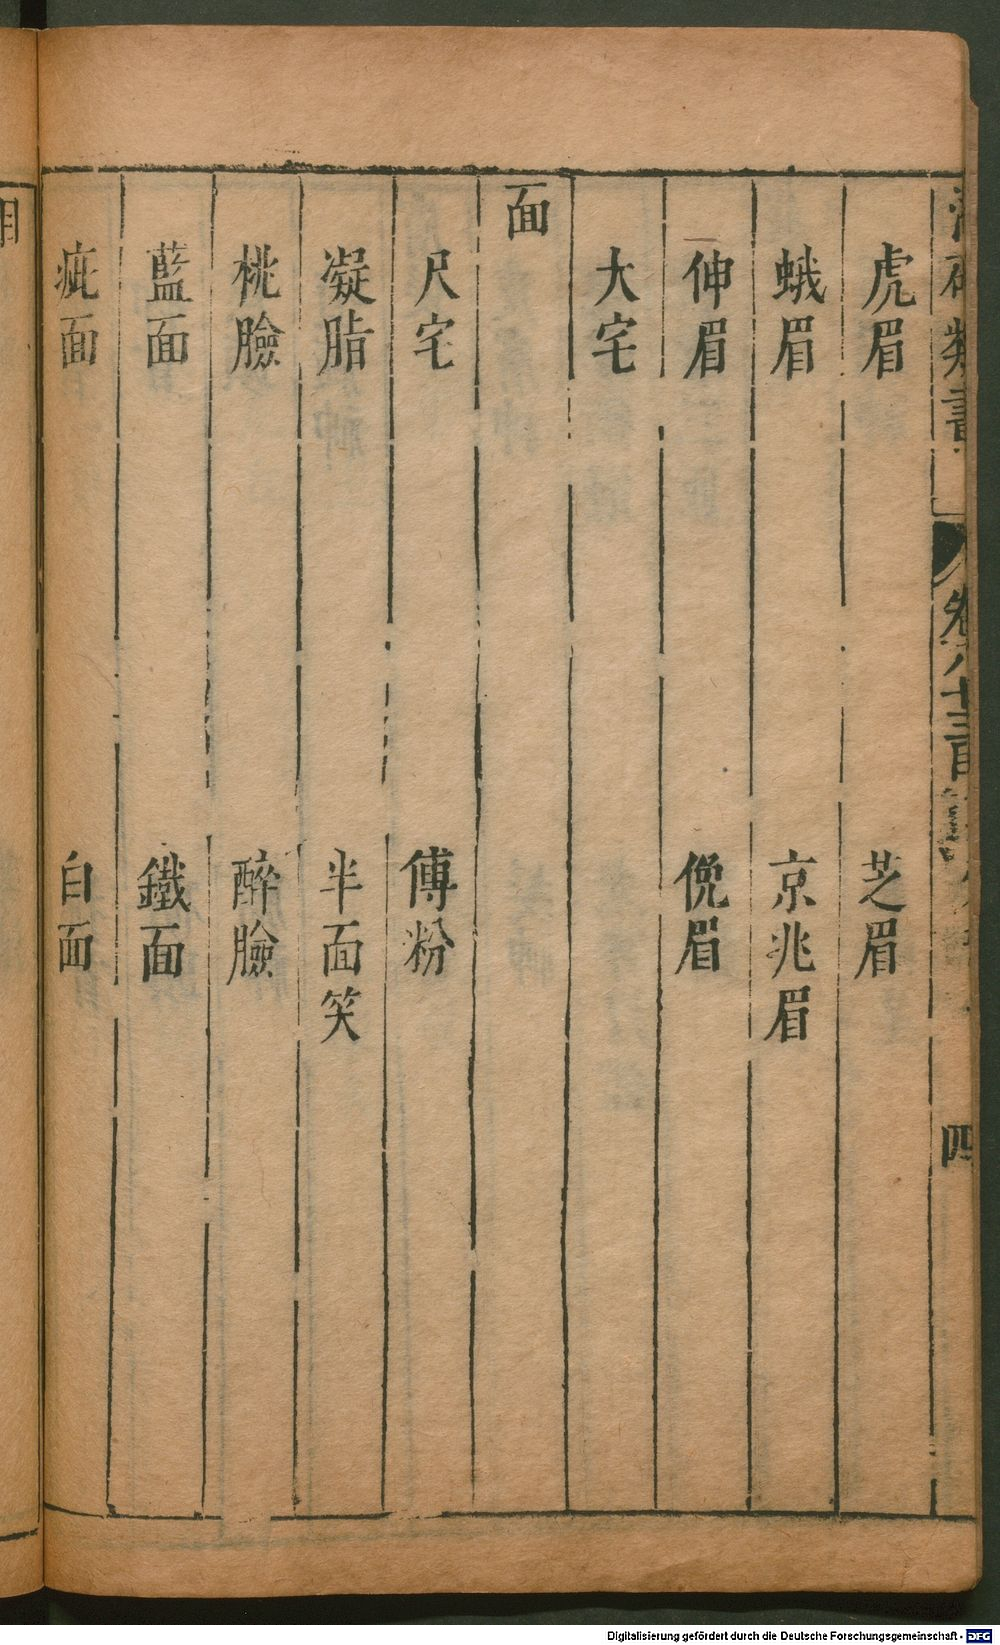 類書 卷八十三目 四
虎眉 芝眉
蛾眉 京兆眉
伸眉 俛眉
大宅
面
尺宅 傅粉
凝脂 半面笑
桃臉 醉臉
藍面 鐵面
疵面 白面
Digitalisierung gefördert durch die Deutsche Forschungsgemeinschaft - DFG